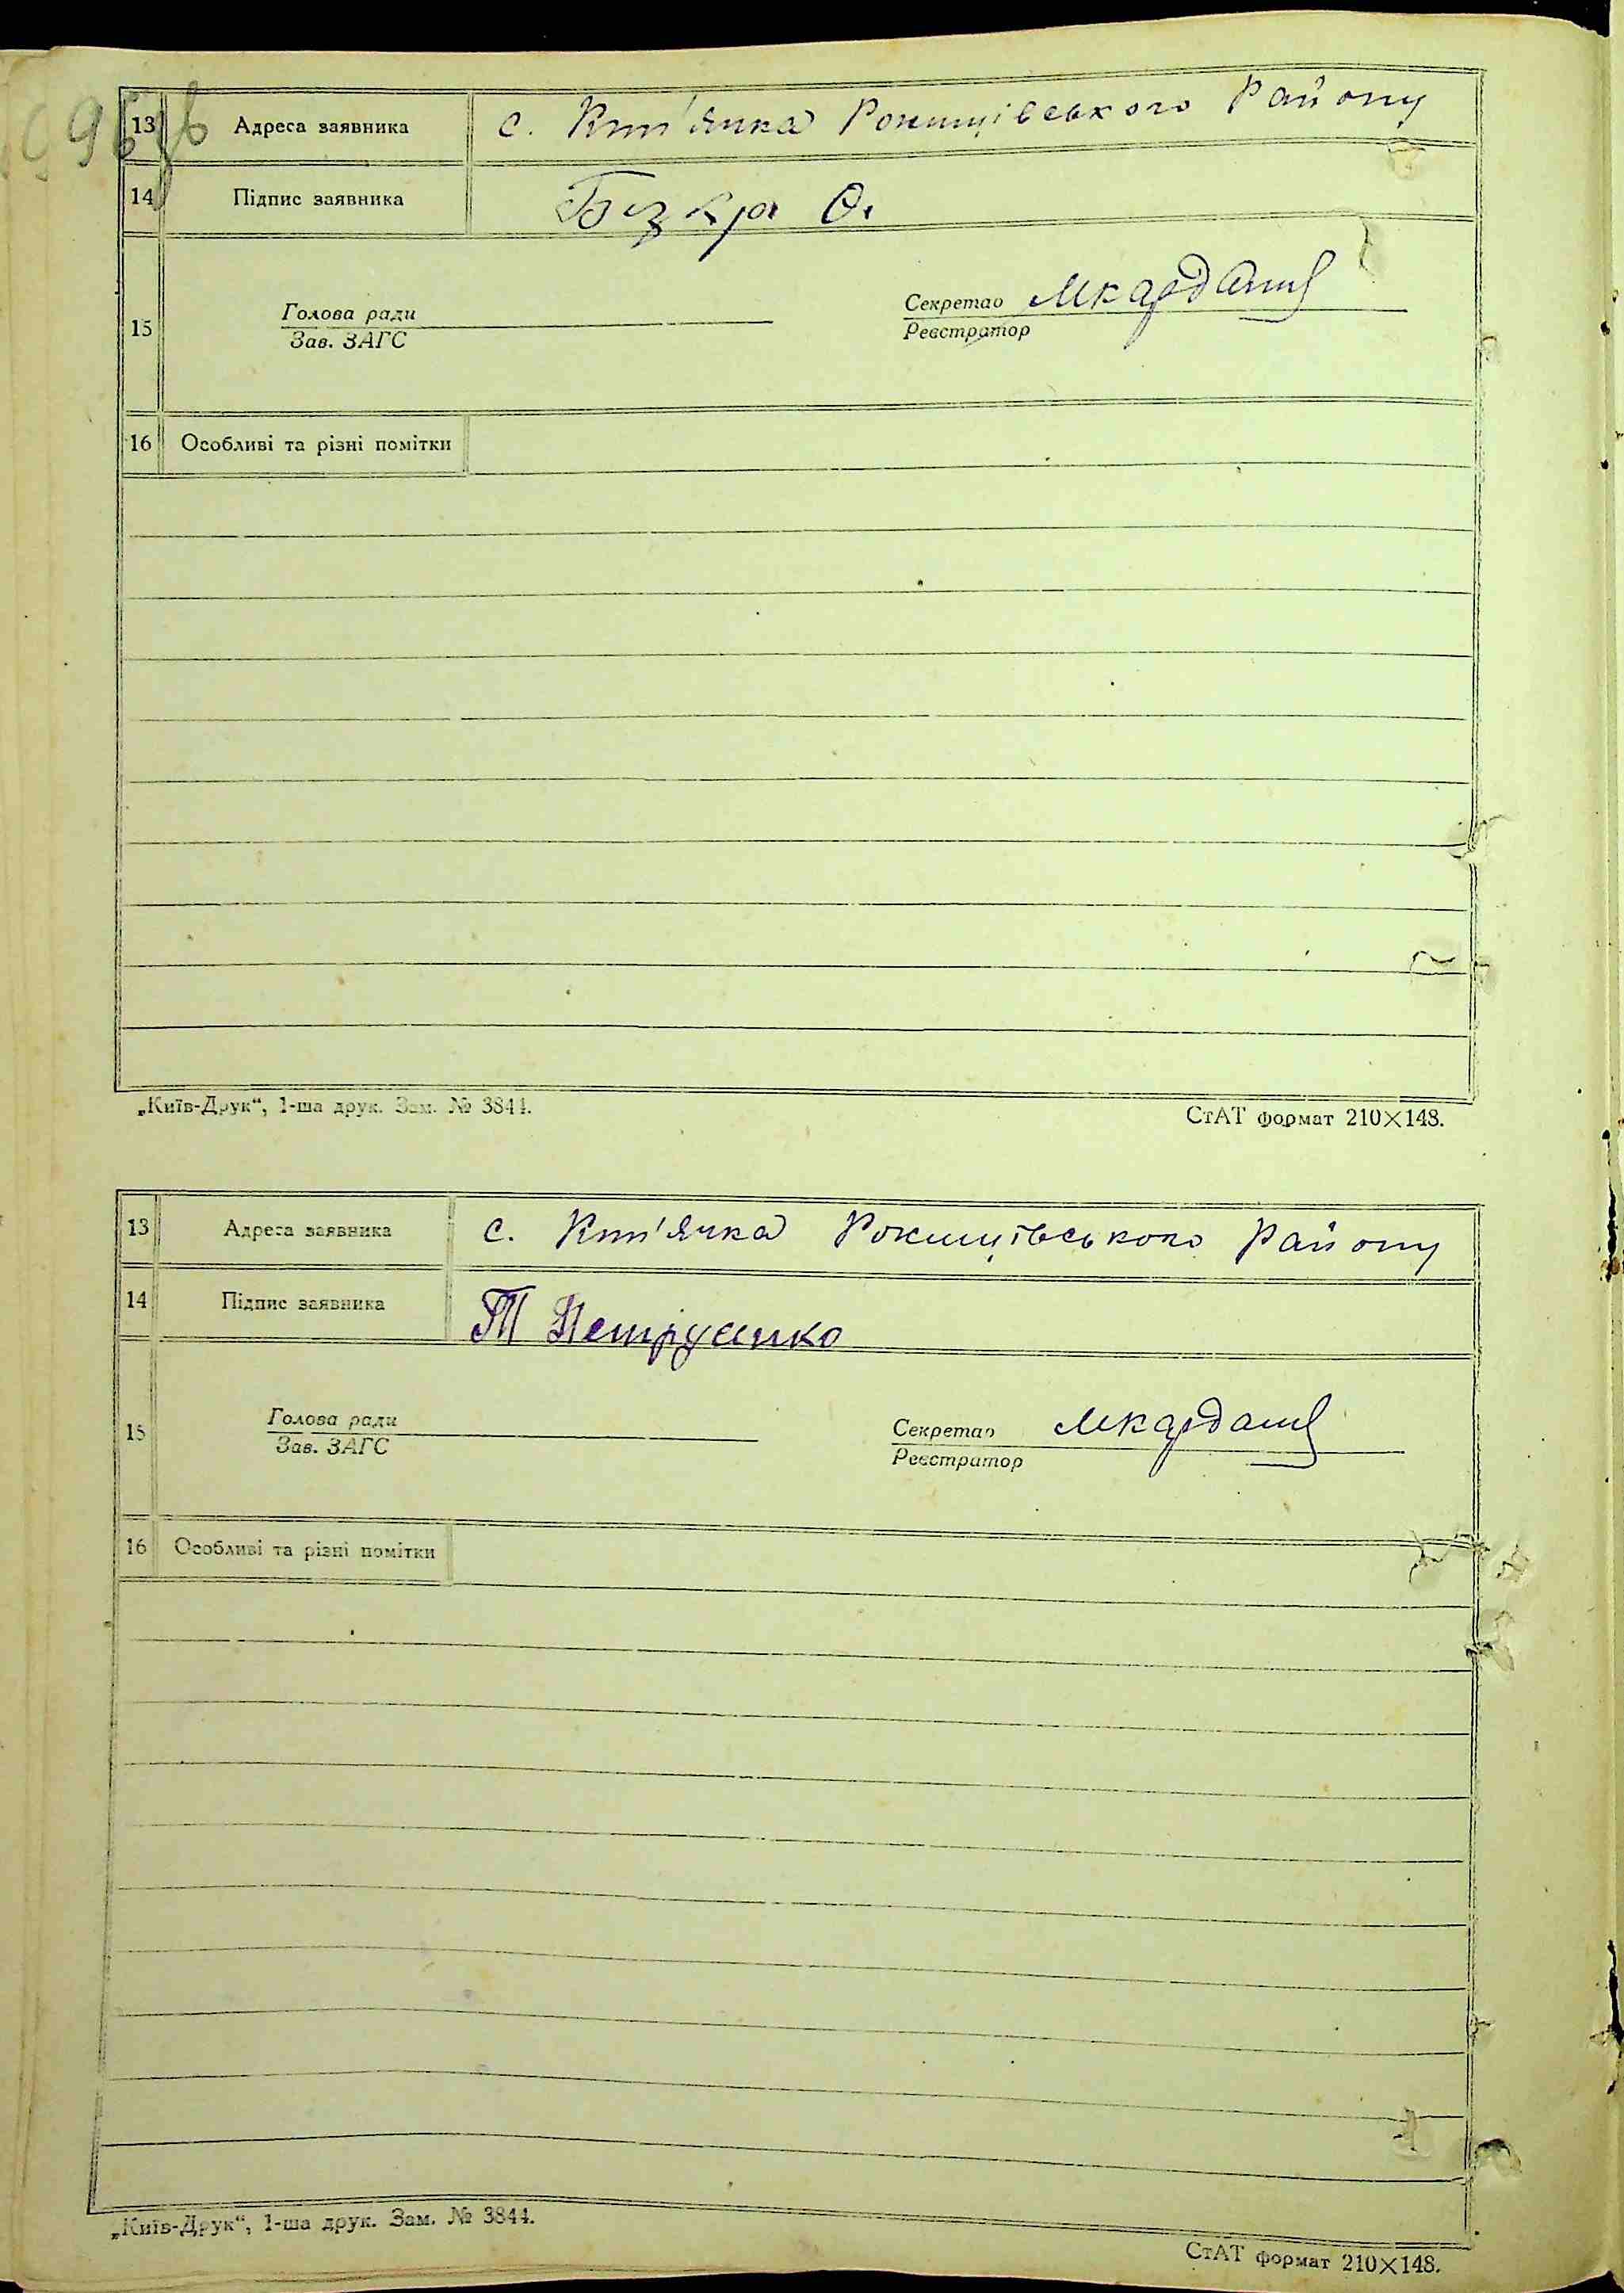 13 Адреса заявника с. Кип'ячка Рокитнівського Району
14 Підпис заявника Бузкра О.
15 Голова ради
Зав. ЗАГС
Секретар
Реєстратор
16 Особливі та різні помітки
„Київ-Друк“, 1-ша друк. Зам. № 3844. СтАТ формат 210×148.
13 Адреса заявника с. Кип'ячка Району
14 Підпис заявника Т Петрусенко
15 Голова ради
Зав. ЗАГС
Секретар
Реєстратор
16 Особливі та різні помітки
„Київ-Друк“, 1-ша друк. Зам. № 3844.
СтАТ формат 210×148.